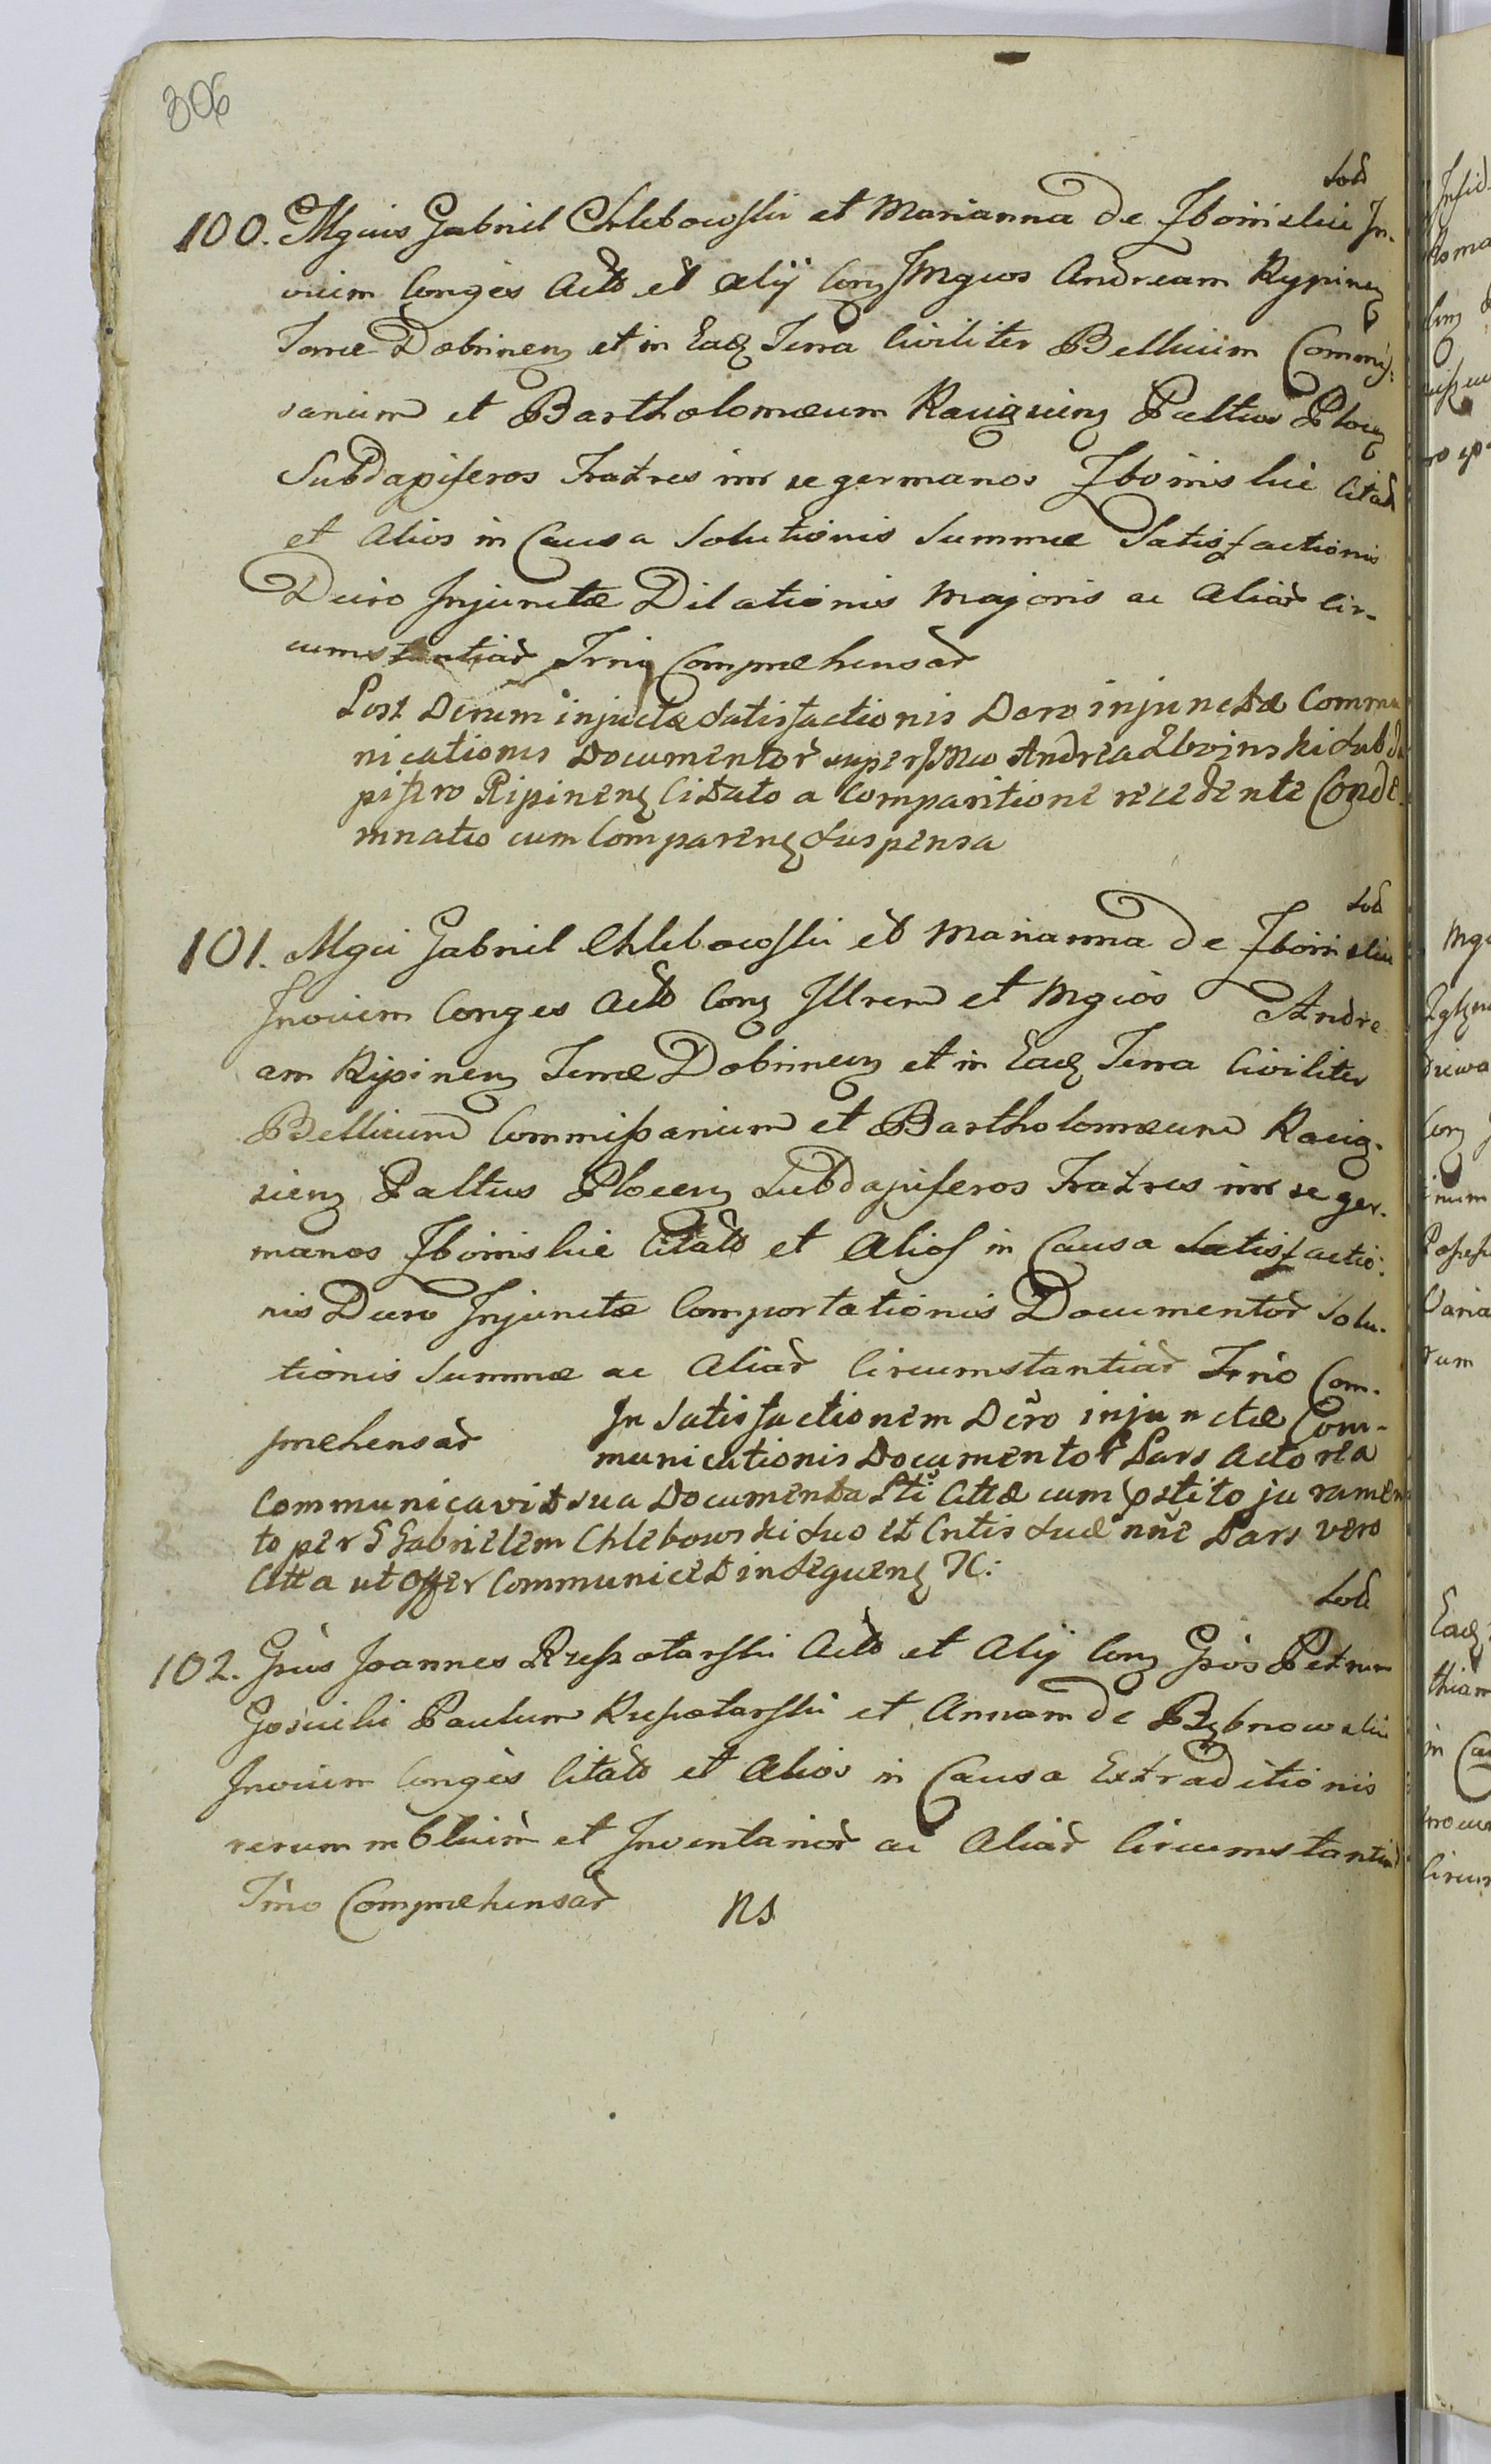 306
Sod
100. Mgcus Gabriel Chlebowski et Marianna de Zboinskie In-
vicem Conges Act et Alij Conz JMgcos Andream Rypinenz
Terræ Dobrinenz et in Eadz Terra Civiliter Bellicum Commis-
sarium et Bartholomæum Raciązienz Pallus Plocenz
Subdapiferos Fratres inr se germanos Zboinskie Citat
et Alios in Causa Solutionis Summæ Satisfactionis
Dcro Injunctæ Dilationis Majoris ac Aliar Cir-
cumstantiar Trng Compræhensar
Post Dcrum injuctæ Satisfactionis Dcro injunctæ Commu
nicationis Documentor super JMco Andrea Zboinski Subda
pifero Ripinenz Citato a Comparitione recedente Conde
mnatio cum Comparenz Suspensa
Sod
101. Mgci Gabriel Chlebowski et Marianna de Zboinskie
Invicem Conges Act Conz Illrem et Mgcos Andre
am Ripinenz Terræ Dobrinenz et in Eadz Terra Civiliter
Bellicum Commissarium et Bartholomæum Raciąz-
zienz Paltus Plocenz Subdapiferos Fratres inr se ger-
manos Zboinskie Citat et Alios in Causa Satisfactio-
nis Dcro Injunctæ Comportationis Documentor Solu-
tionis Summæ ac Aliar Circumstantiar Trno Com-
præhensar In Satisfactionem Dcro injunctæ Com-
municationis Documentor Pars Actorea
Communicavit sua Documenta Pti Cittæ cum pstito juramen
to per G Gabrielem Chlebowski suo et Cntis suæ nne Pars vero
Citta ut Offer Communicet in Sequenz Tc:
Sod
102. Grus Joannes Rzeszotarski Act et Alij Conz Gros Petrum
Gosicki Paulum Rzeszotarski et Annam de Bębnowskie
Invicem Conges Citat et Alios in Causa Extraditionis
rerum mblium et Inventarior ac Aliar Circumstantiar
Trno Compræhensar ns